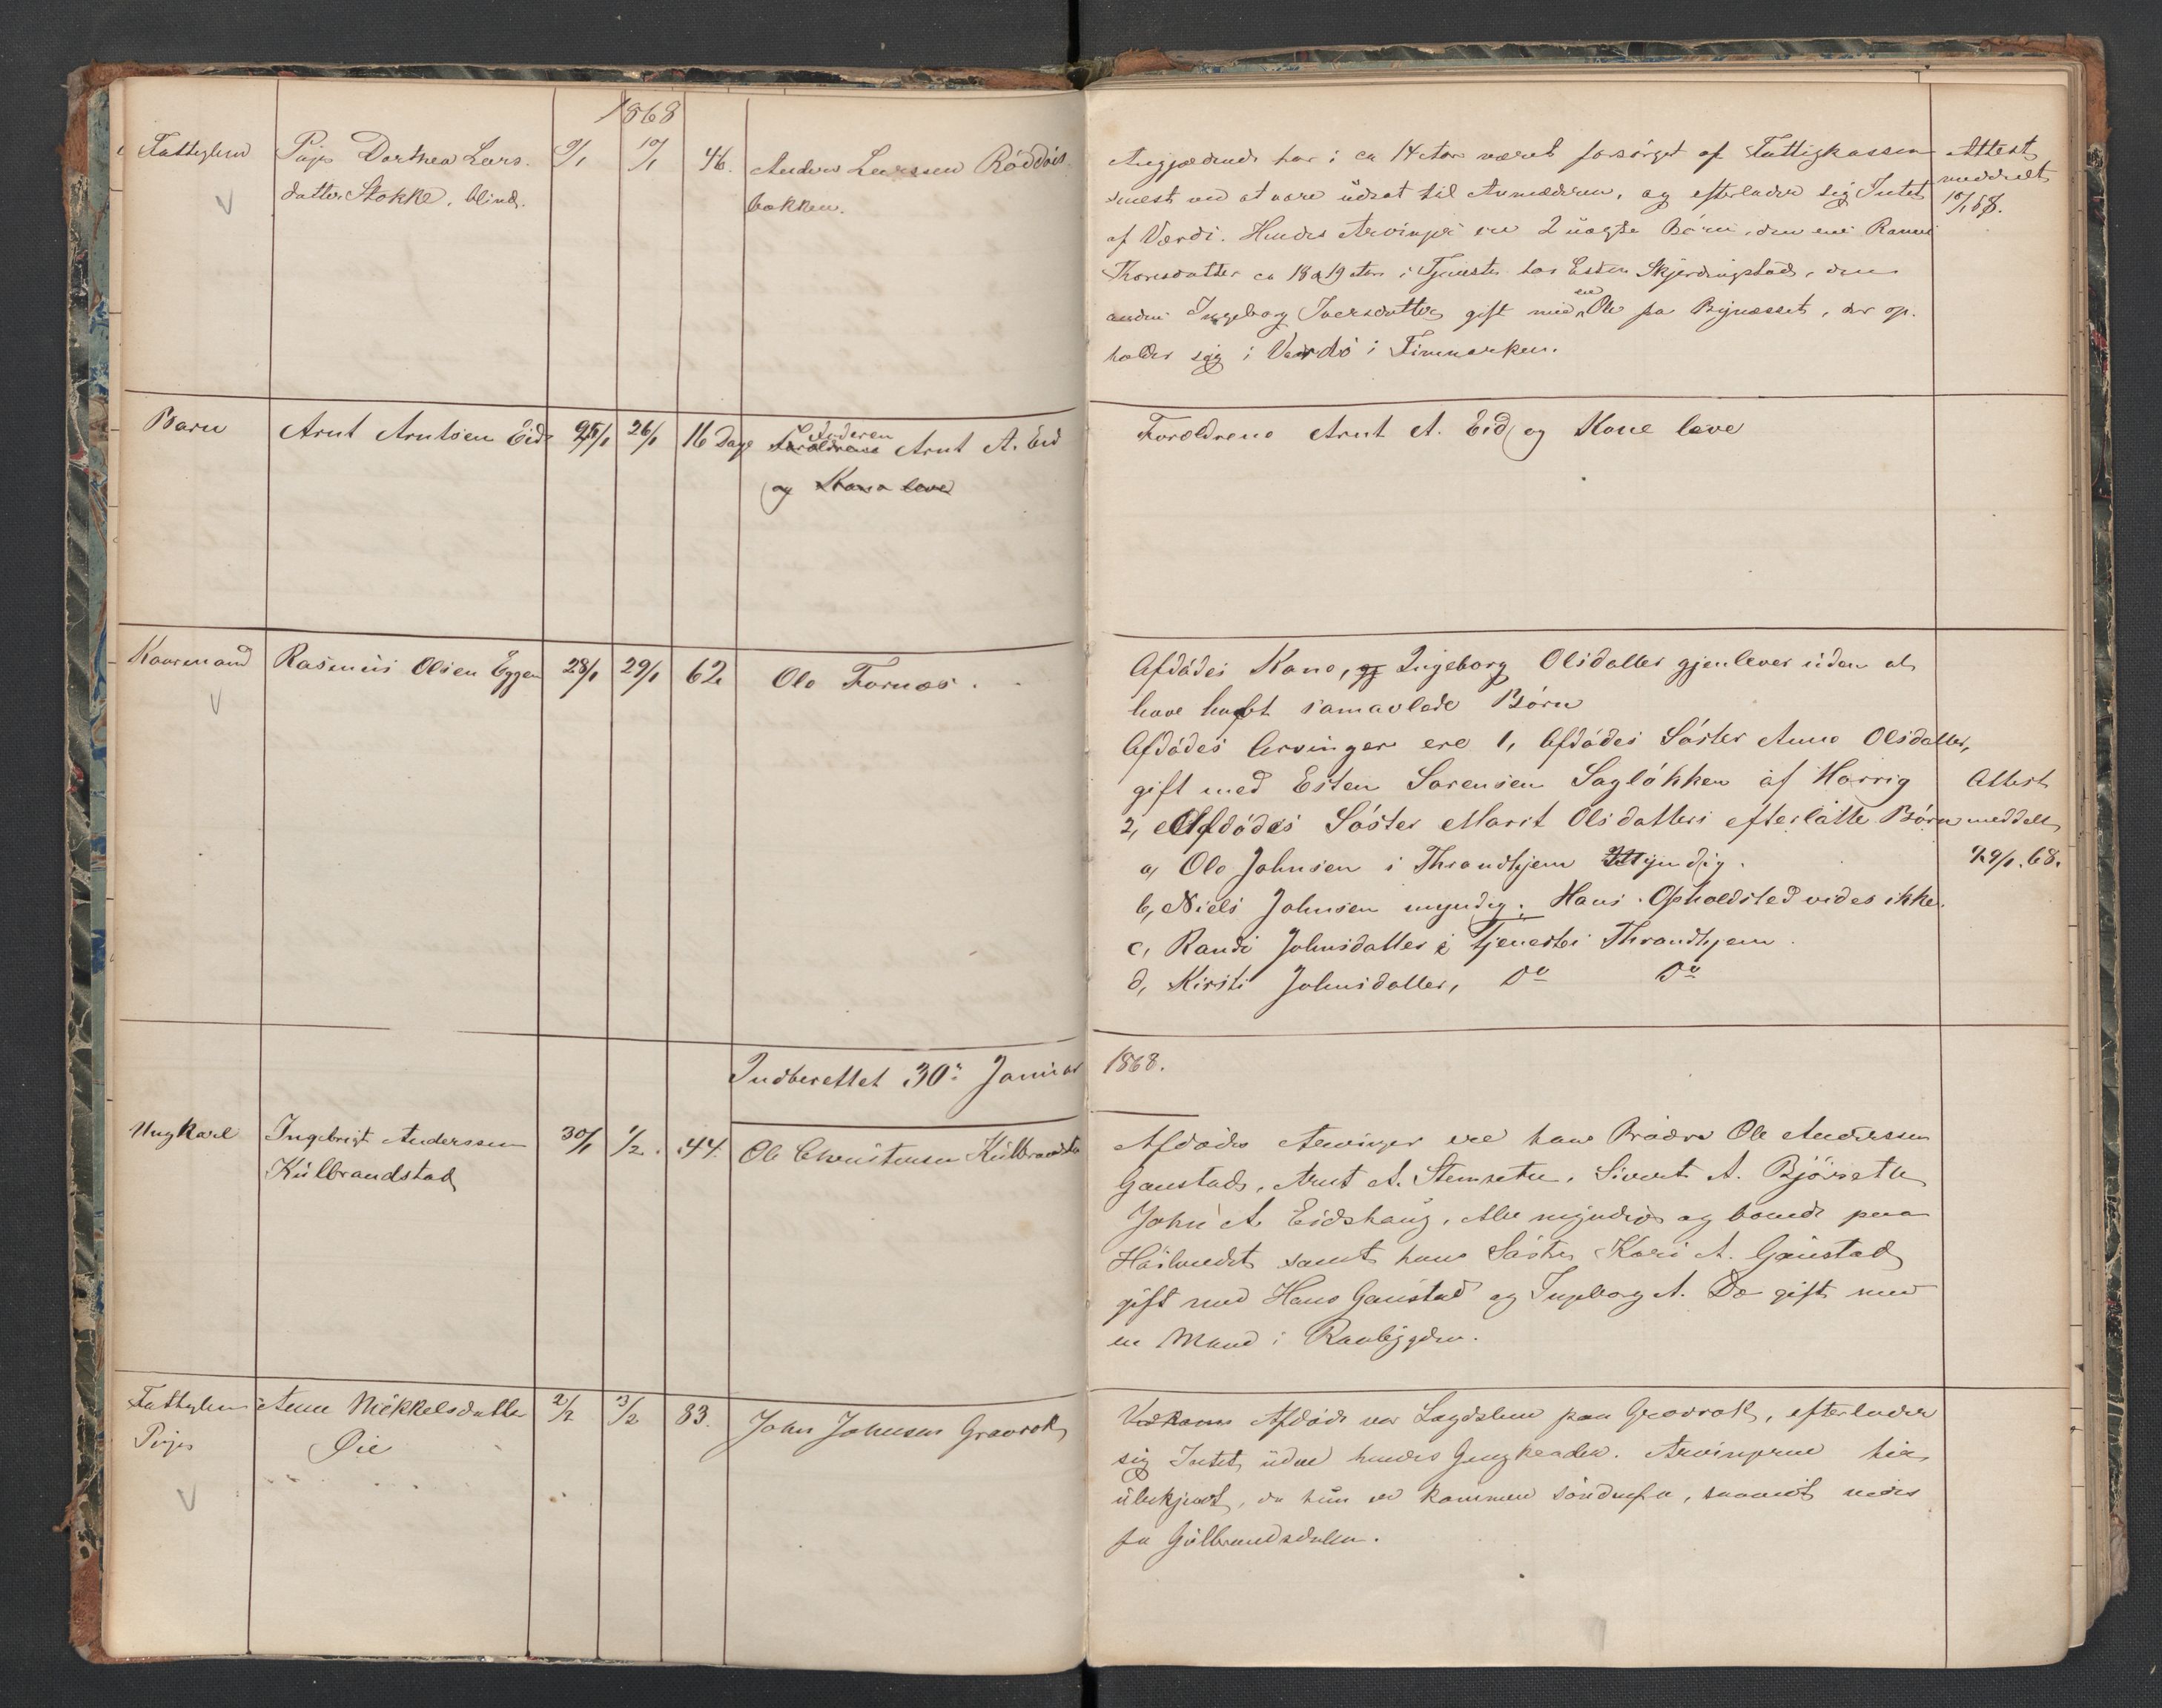 1868
Fattiglem Pige Dorthea Lars- 9/1 10/1 46. Anders Larssen Röddös-
datter Stokke, blind. bakken.
Angjældende har i ca 14 Aar været forsörget af Fattigkassen Attest
senest ved at være udsat til Anmælderen, og efterlader sig Intet meddelt
af Værdi. Hendes Arvinger ere 2 uægte Börn, den ene 10/1 68.
Thoresdatter ca 18 a 19 Aar i Tjeneste hos Esten Skjerdingstad, den
anden Ingeborg Iversdatter gift med en Ole fra Bynæsset, der op-
holder sig i Vardö i Finmarken.
Barn Arnt Arntsen Eid 25/1 26/1 16 Dage Faderen Arnt A. Eid
Forældrene
og Kone leve
Forældrene Arnt A. Eid og Kone leve
Kaarmand Rasmus Olsen Eggen 28/1 29/1 62 Ole Fornæs.
Afdödes Kone, Ingeborg Olsdatter gjenlever uden at
have havft samavlede Börn
Afdödes Arvinger ere 1, Afdödes Söster Anne Olsdatter,
gift med Esten Sorensen Saglökken af Horrig Attest
2, Afdödes Söster Marit Olsdatters efterlatte Börn meddelt
a, Ole Johnsen i Throndhjem myndig. 29/1. 68.
b, Niels Johnsen myndig. Hans Opholdsted vides ikke.
c, Randi Johnsdatter i Tjeneste i Throndhjem.
d, Kirsti Johnsdatter, Do Do
Indberettet 30. Januar 1868.
Ungkarl Ingebrigt Anderssen 30/1 1/2. 44. Ole Christensen Kulbrandstad
Kulbrandstad
Afdödes Arvinger ere hans Brödre Ole Anderssen
Gaustad, Arnt A. Stensetn, Sivert A. Björsetn
John A. Eidshaug, Alle myndige og boende paa
Hölandet samt hans Söster Kari A. Gaustad
gift med Hans Gaustad og Ingeborg A. Do gift med
en Mand i Ranbygden.
Fattiglem Anne Mikkelsdatter 2/2 3/2 83. John Johnsen Gravrok
Pige Öie
Vedkom Afdöde var Lægdslem paa Gravrok, efterlader
sig Intet uden hendes Gangklæder. Arvingerne her
ubekjendt, da hun er kommen söndenfra, saavidt vides
fra Gulbrandsdalen.